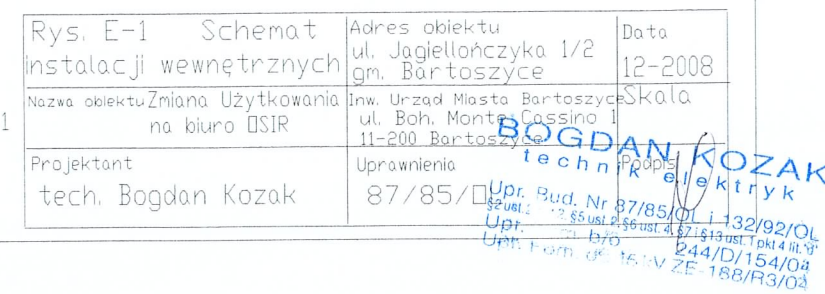 Rys. E-1 Schemat
instalacji wewnętrznych
Adres obiektu
ul. Jagiellończyka 1/2
gm. Bartoszyce
Data
12-2008
Nazwa obiektu Zmiana Użytkowania
na biuro OSIR
Inw. Urząd Miasta Bartoszyce
ul. Boh. Monte Cassino 1
11-200 Bartoszyce
Skala
1
Projektant
tech. Bogdan Kozak
Uprawnienia
87/85/
Podpis
BOGDAN KOZAK
technik elektryk
Upr. Bud. Nr 87/85/OL i 132/92/OL
§5 ust. 2, §6 ust. 4, §7 i §13 ust. 1 pkt 4 lit. "d"
Upr. b/o 244/D/154/04
Upr. Pom. do kV ZE-188/R3/04